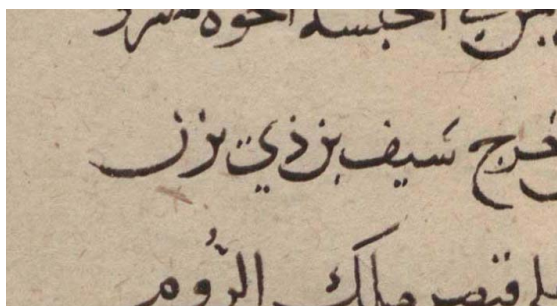 في الحبشة اخوه مسرو
خرج سَيف بن ذي يزن
قيصر ملك الرُّوم